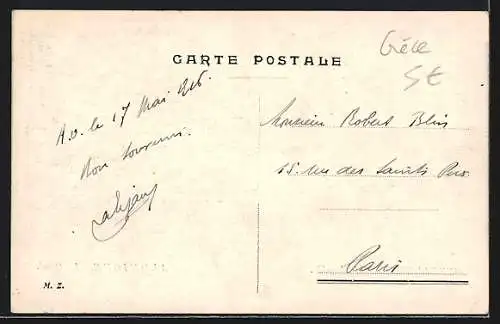 CARTE POSTALE
Grèce
5€
A.O. le 17 Mai 916.
Bon souvenir.
Monsieur Robert Blin
15. rue des Saints Pères
Paris
M. Z.